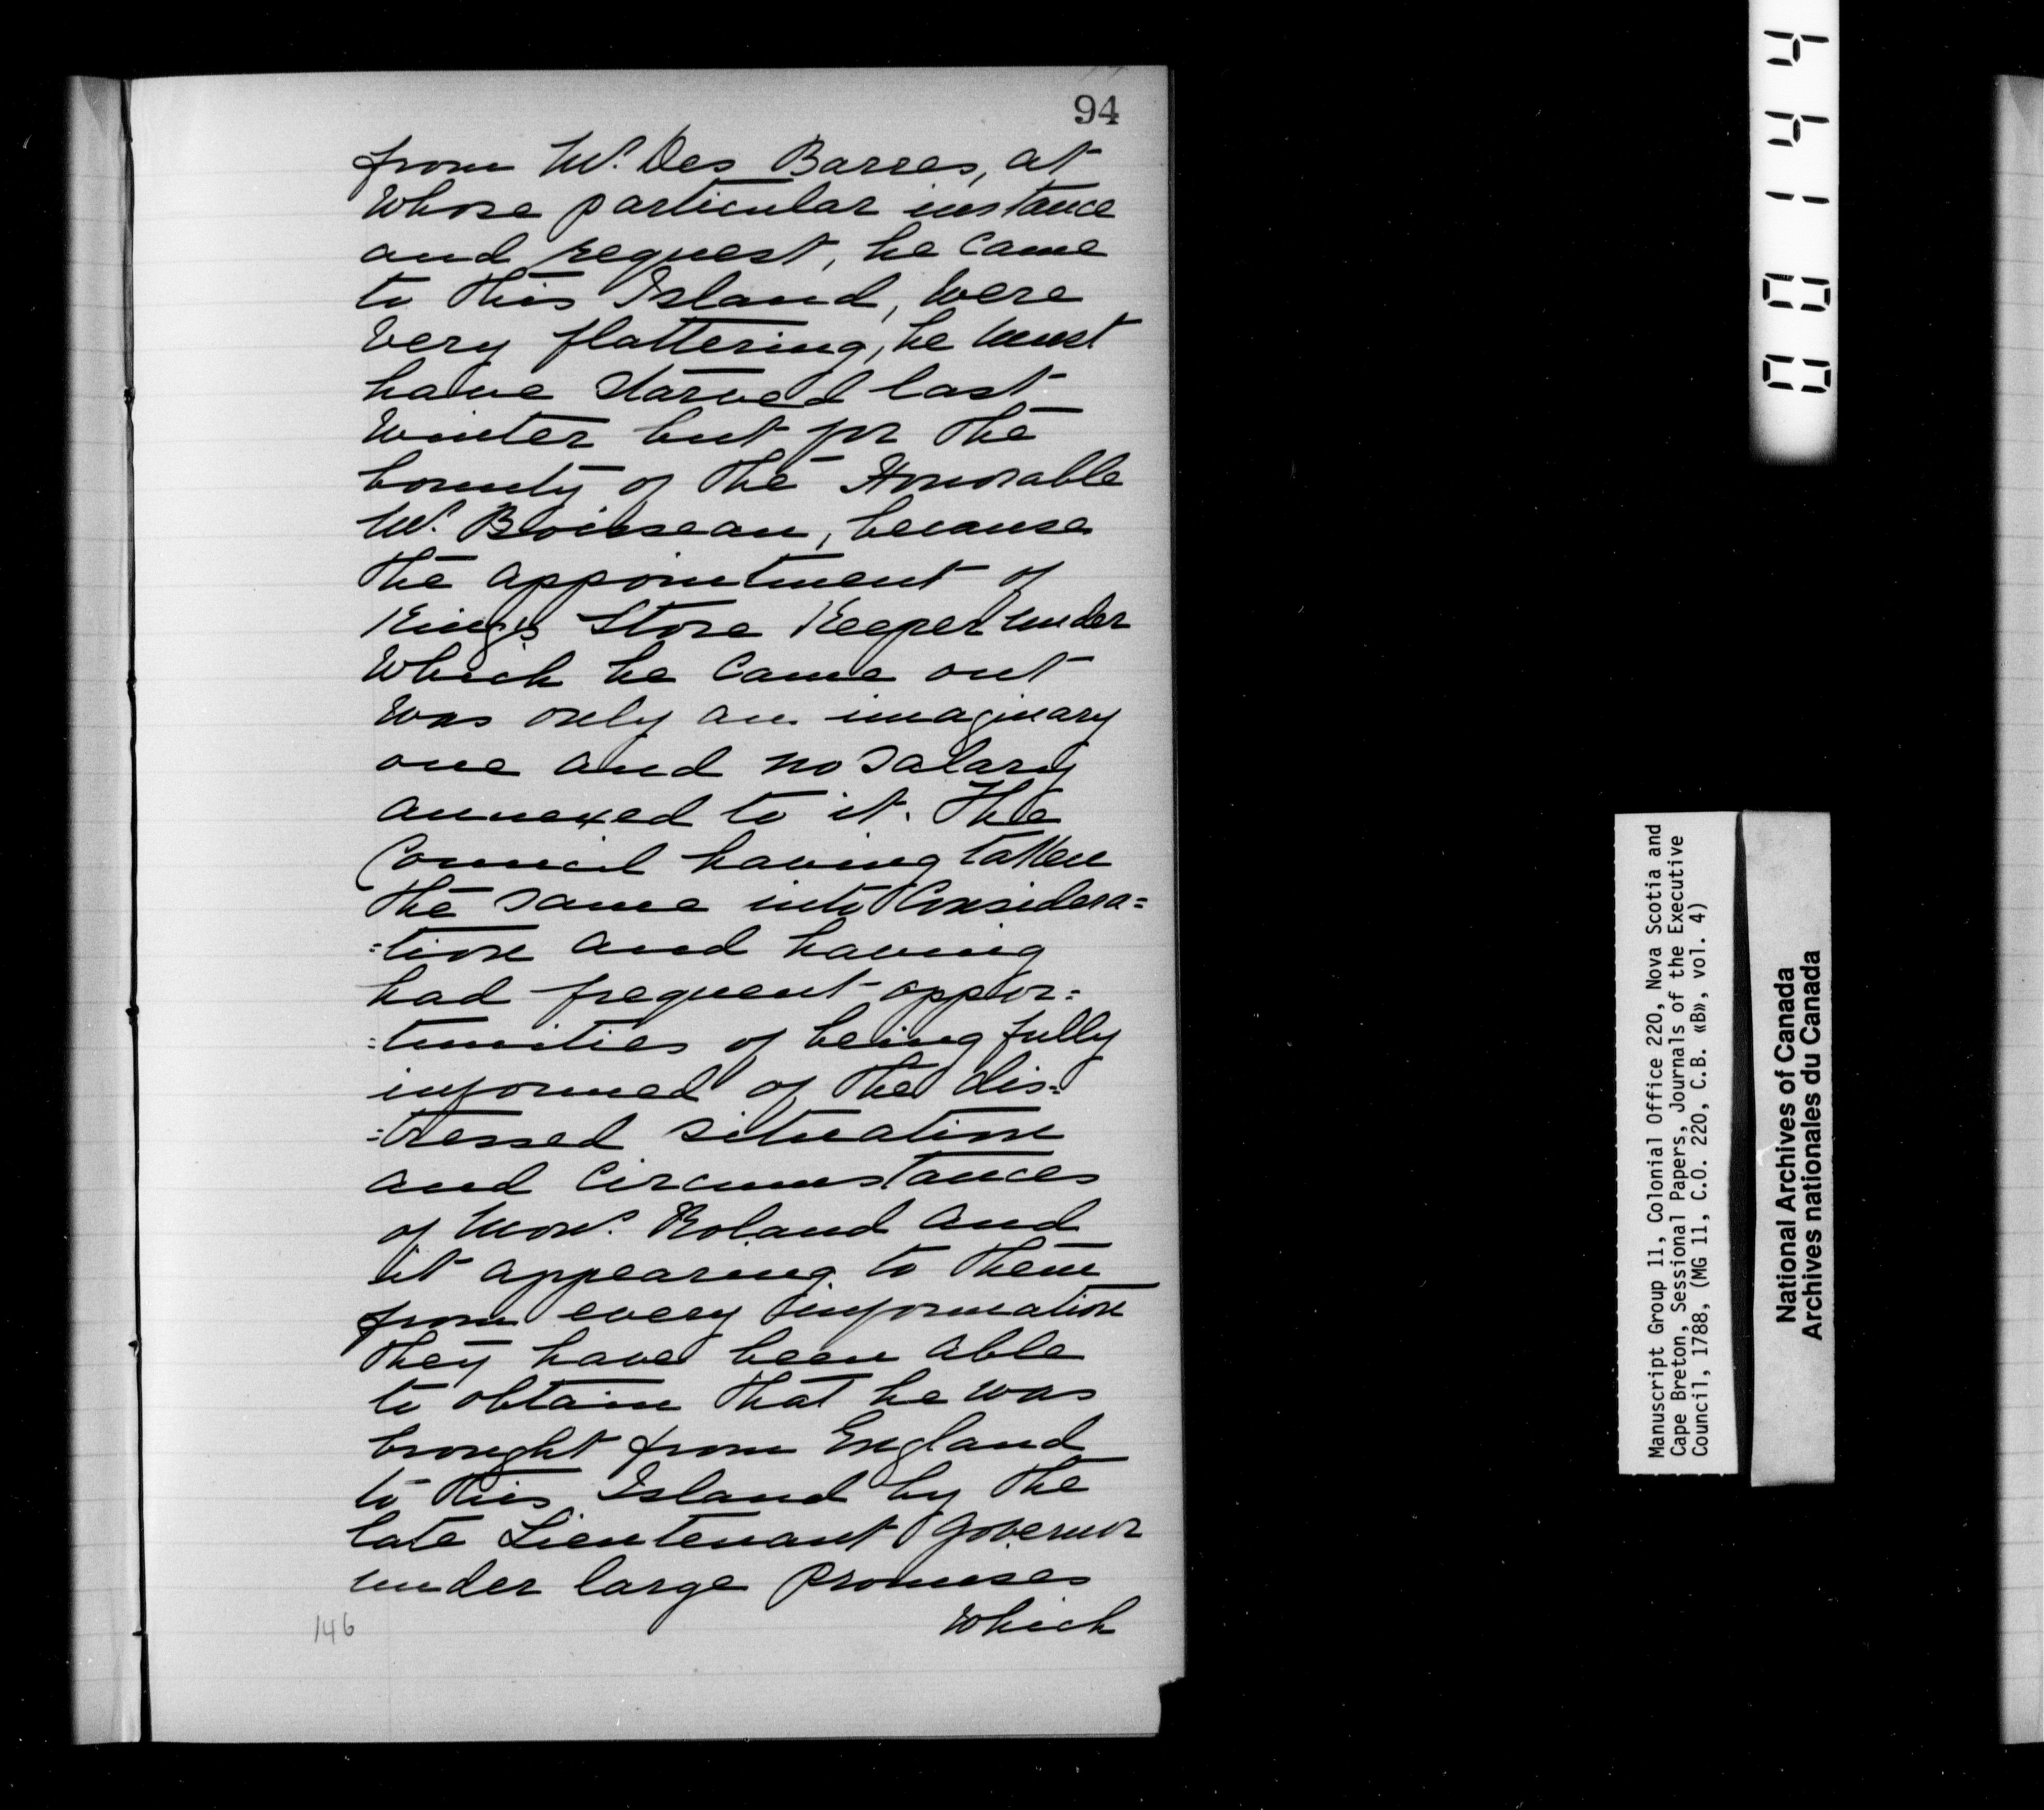 94
from Mr. Des Barres, at
whose particular instance
and request, he came
to this Island, were
very flattering, he must
have starved last
winter but for the
bounty of the Honorable
Mr. Boisseau, because
the appointment of
King's Store Keeper under
which he came out
was only an imaginary
one and no salary
annexed to it. The
Council having taken
the same into Considera=
=tion and having
had frequent oppor=
=tunities of being fully
informed of the dis=
=tressed situation
and Circumstances
of Monr. Roland and
it appearing to them
from every information
they have been able
to obtain that he was
brought from England
to this Island by the
late Lieutenant Governor
under large promises
which
146
001444
Manuscript Group 11, Colonial Office 220, Nova Scotia and
Cape Breton, Sessional Papers, Journals of the Executive
Council, 1788, (MG 11, C.O. 220, C.B. «B», vol. 4)
National Archives of Canada
Archives nationales du Canada